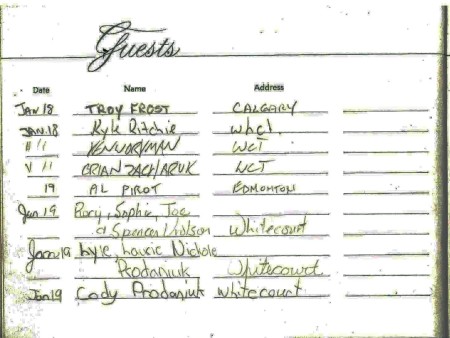 Guests
Date Name Address
JAN 18 TROY FROST CALGARY
JAN.18 Kyle Ritchie Whct.
" " KEN WORKMAN WCT
" " BRIAN ZACHARUK WCT
19 AL PIROT EDMONTON
Jan 19 Rory, Sophie, Tae
& Spencer Whitecourt
Jan 19 Lyle, Laurie Nickole
Prodaniuk Whitecourt.
Jan 19 Cody Prodaniuk Whitecourt